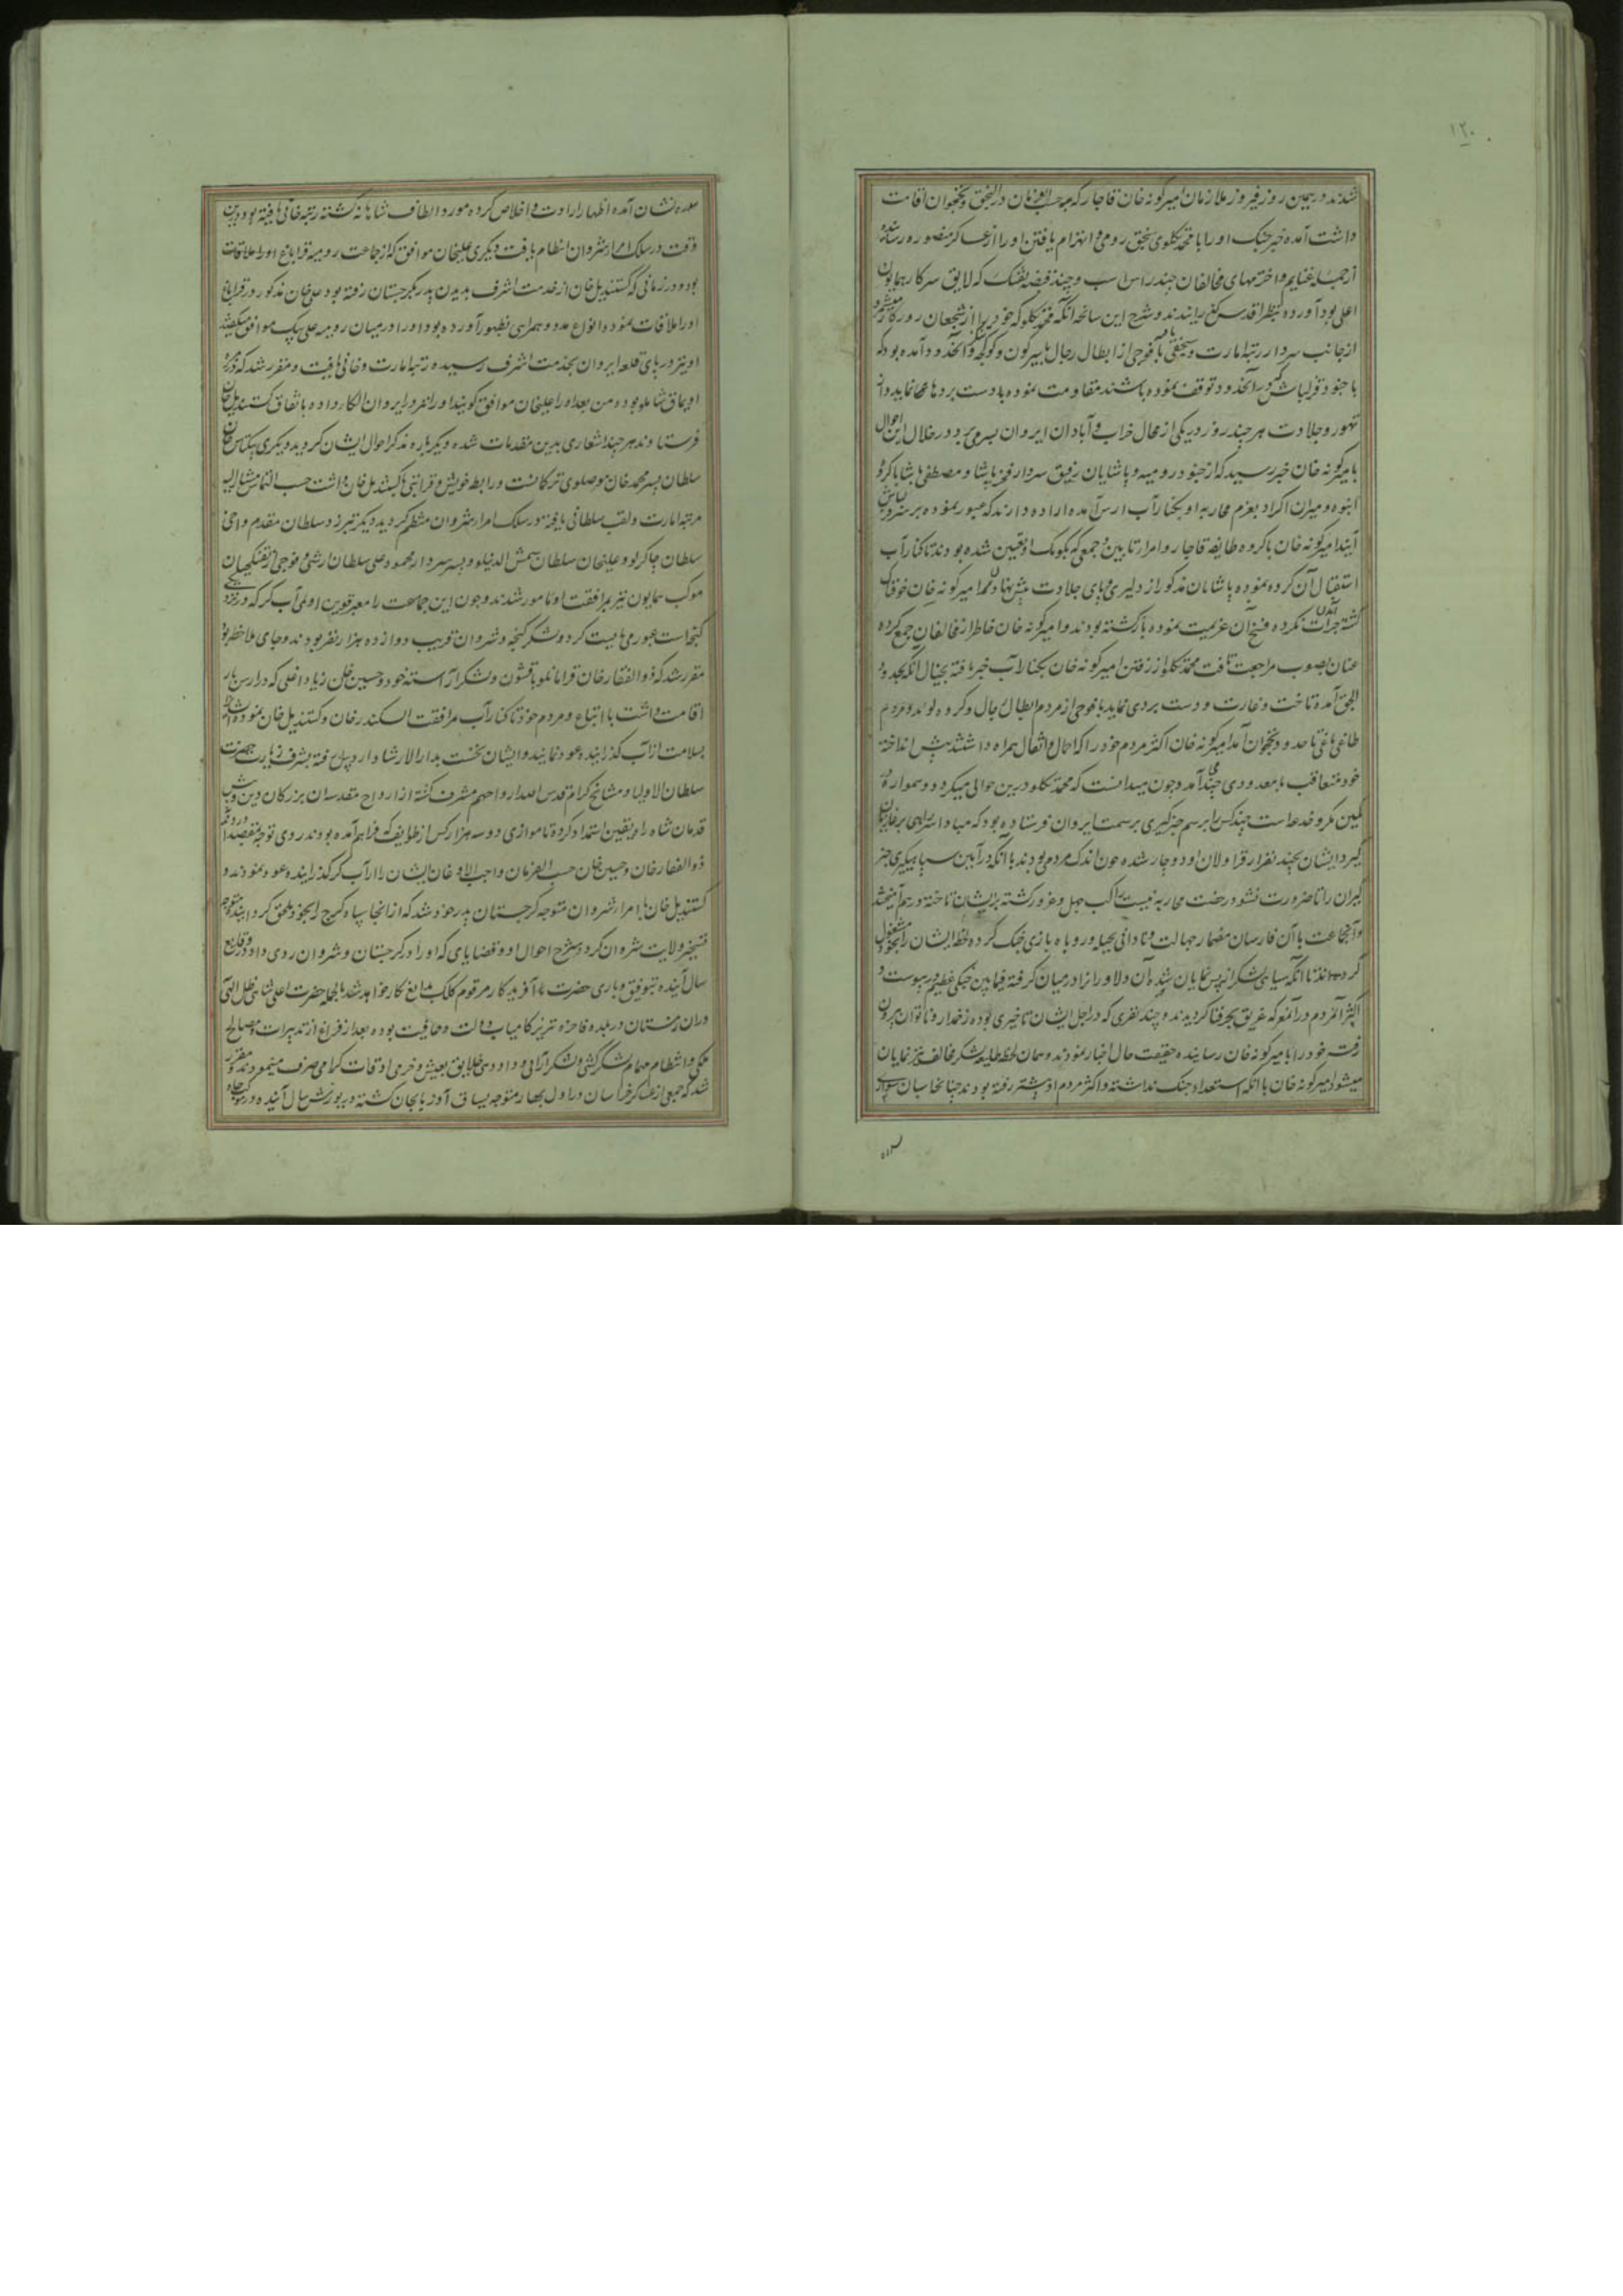 ۱۲۰
شدند در همین روز فیروز ملازمان امیرکونه خان قاجار که حسب الفرمان در النجق و نخجوان اقامت
داشت آمده خبر جنک او را با محمد تکلوی سنجق رومی و انهزام یافتن او را از عساکر منصوره رسانیده
از جمله غنایم و اخترمهای مخالفان چند راس اسب و چند قبضه تفنک که لایق سرکار همایون
اعلی بود آورده بنظر اقدس گذرانیدند و شرح این سانحه آنکه محمد تکلو که خود را از شجعان روزکار میشمرد
از جانب سردار رتبه امارت و سنجقی یافته با فوجی از ابطال رجال بایبرکون و کوکجه و آنحدود آمده بود که
با جنود قزلباش که در آنحدود توقف نموده باشند مقاومت نموده بادست بردها نماید و از
تهور و جلادت هر چند روز در یکی از محال خراب و آبادان ایروان بسر می برد در خلال این احوال
بامیرکونه خان خبر رسید که از جنود رومیه و پاشایان رفیق سردار پاشا و مصطفی پاشا با کروه
انبوه و میران اکراد بعزم محاربه او بکنار آب ارس آمده اراده دارند که عبور نموده بر سر
آیند امیرکونه خان با کروه طایفه قاجار و امراء تابین و جمعی که بکومک او تعیین شده بودند تا کنار آب
استقبال آن کروه نموده پاشایان مذکور از دلیری و پای جلادت پیش نهادن امیرکونه خان خوفناک
کشته جرات آمدن نکرده فسخ آن عزیمت نموده بازکشته بودند و امیرکونه خان خاطر از مخالفان جمع کرده
عنان بصوب مراجعت تافت محمد تکلو از رفتن امیرکونه خان بکنار آب خبر یافته بخیال آنکه بحدود
النجق آمده تاخت و غارت و دست بردی نماید با فوجی از مردم ابطال رجال و کروه لوند و مردم
طاغی باغی تا حدود نخجوان آمد امیرکونه خان اکثر مردم خود را که احمال و اثقال همراه داشتند پیش انداخته
خود متعاقب با معدودی چند می آمد و چون میدانست که محمد تکلو درین حوالی میکردد و همواره در
کمین مکر و خدعه است چند کس را برسم خبر کیری بر سمت ایروان فرستاده بود که مبادا سر راهی بر غازیان
کیرد ایشان بچند نفر از قراولان او دوچار شده چون اندک مردمی بودند با آنکه در آیین سپاهیکری خبر
کیران را تا ضرورت نشود رخصت محاربه نیست راکب جهل و غرور کشته بر ایشان تاخته و درهم آمیختند
و آنجماعت با آن فارسان مضمار جهالت و نادانی بحیله و روباه بازی جنک کرده لحظه ایشان را بخود مشغول
کردانیدند تا آنکه سیاهی لشکر از پس نمایان شده آن دلاوران را در میان کرفته فیمابین جنکی عظیم در پیوست و
اکثر آنمردم در آنمعرکه غریق بحر فنا کردیدند و چند نفری که در اجل ایشان تاخیری بوده زخمدار و ناتوان بیرون
رفته خود را بامیرکونه خان رسانیده حقیقت حال اخبار نمودند و همان لحظه طلیعه لشکر مخالف نیز نمایان
میشود امیرکونه خان با آنکه استعداد جنک نداشته و اکثر مردم او پیشتر رفته بودند چنانچه اسبان سواری
سده نشان آمده اظهار ارادت و اخلاص کرده مورد الطاف شاهانه کشته رتبه خانی یافته بود درین
وقت در سلک امراء شروان انتظام یافت دیکری علیخان موافق که از جماعت رومیه قراباغ او را علاقات
بود و در زمانی که کستندیل خان از خدمت اشرف بدیدن پدر بکرجستان رفته بود علی خان مذکور در قراباغ
او را ملاقات نموده انواع مدد و همراهی بظهور آورده بود او را در میان رومیه علی بیک موافق میکفتند
او نیز در پای قلعه ایروان بخدمت اشرف رسیده رتبه امارت و خانی یافت و مقرر شد که در
اویماق شاملو بوده من بعد او را علیخان موافق کویند او را نیز در ایروان الکا داده باتفاق کستندیل خان
فرستادند هر چند اشعاری بدین مقدمات شده دیکر باره مذکر احوال ایشان کردید دیکری بکتاش خان
سلطان پسر محمد خان موصلوی ترکمانست و رابطه خویشی و قرابتی با کستندیل خان داشت حسب التماس مشارالیه
مرتبه امارت و لقب سلطانی یافته در سلک امراء شروان منتظم کردید دیکر تبرزد سلطان مقدم و اخی
سلطان چاکرلو و علیخان سلطان شمس الدینلو و پسر سردار محمود و علی سلطان ارشی و فوجی از تفنکچیان
موکب همایون نیز بمرافقت او مامور شدند و چون این جماعت را معبر قوین اولمی آب کر که در نزدیکی
کنجه است عبور می بایست کرد و لشکر کنجه و شروان قریب دوازده هزار نفر بودند و جای ملاحظه بود
مقرر شد که ذوالفقار خان قرامانلو با قشون و لشکر آراسته خود و حسین خان زیاد اغلی که در ارسبار
اقامت داشت با اتباع و مردم خود تا کنار آب مرافقت اسکندر خان و کستندیل خان نموده ایشان را
بسلامت از آب کذرانیده عود نمایند و ایشان نخست بدارالارشاد اردبیل رفته بشرف زیارت حضرت
سلطان الاولیا و مشایخ کرام قدس الله ارواحهم مشرف کشته از ارواح مقدسه آن بزرکان دین و پیش
قدمان شاه راه یقین استمداد کرده تا موازی دو سه هزار کس از طوایف که فراهم آمده بودند روی توجه بمقصد آوردند
ذوالفقار خان و حسین خان حسب الفرمان واجب الاذعان ایشان را از آب کر کذرانیده عود نمودند و
کستندیل خان با امراء شروان متوجه کرجستان پدر خود شد که از آنجا سپاه کرج را بخود ملحق کردانیده متوجه
تسخیر ولایت شروان کردد شرح احوال او و قضایای که او را در کرجستان و شروان روی داد در وقایع
سال آینده بتوفیق و یاری حضرت آفریدکار مرقوم کلک بدایع نکار خواهد شد بالجمله حضرت اعلی شاهی ظل اللهی
در آن زمستان در بلده فاخره تبریز کامیاب دولت و عافیت بوده بعد از فراغ از تدبیرات و مصالح
ملکی و انتظام مهام لشکرکشی و لشکر آرائی و داد دهی خلایق بعیش و خرمی اوقات کرامی صرف مینمودند و مقرر
شد که جمعی از عساکر خراسان در اول بهار متوجه یساق آذربایجان کشته در یورش سال آینده در رکاب